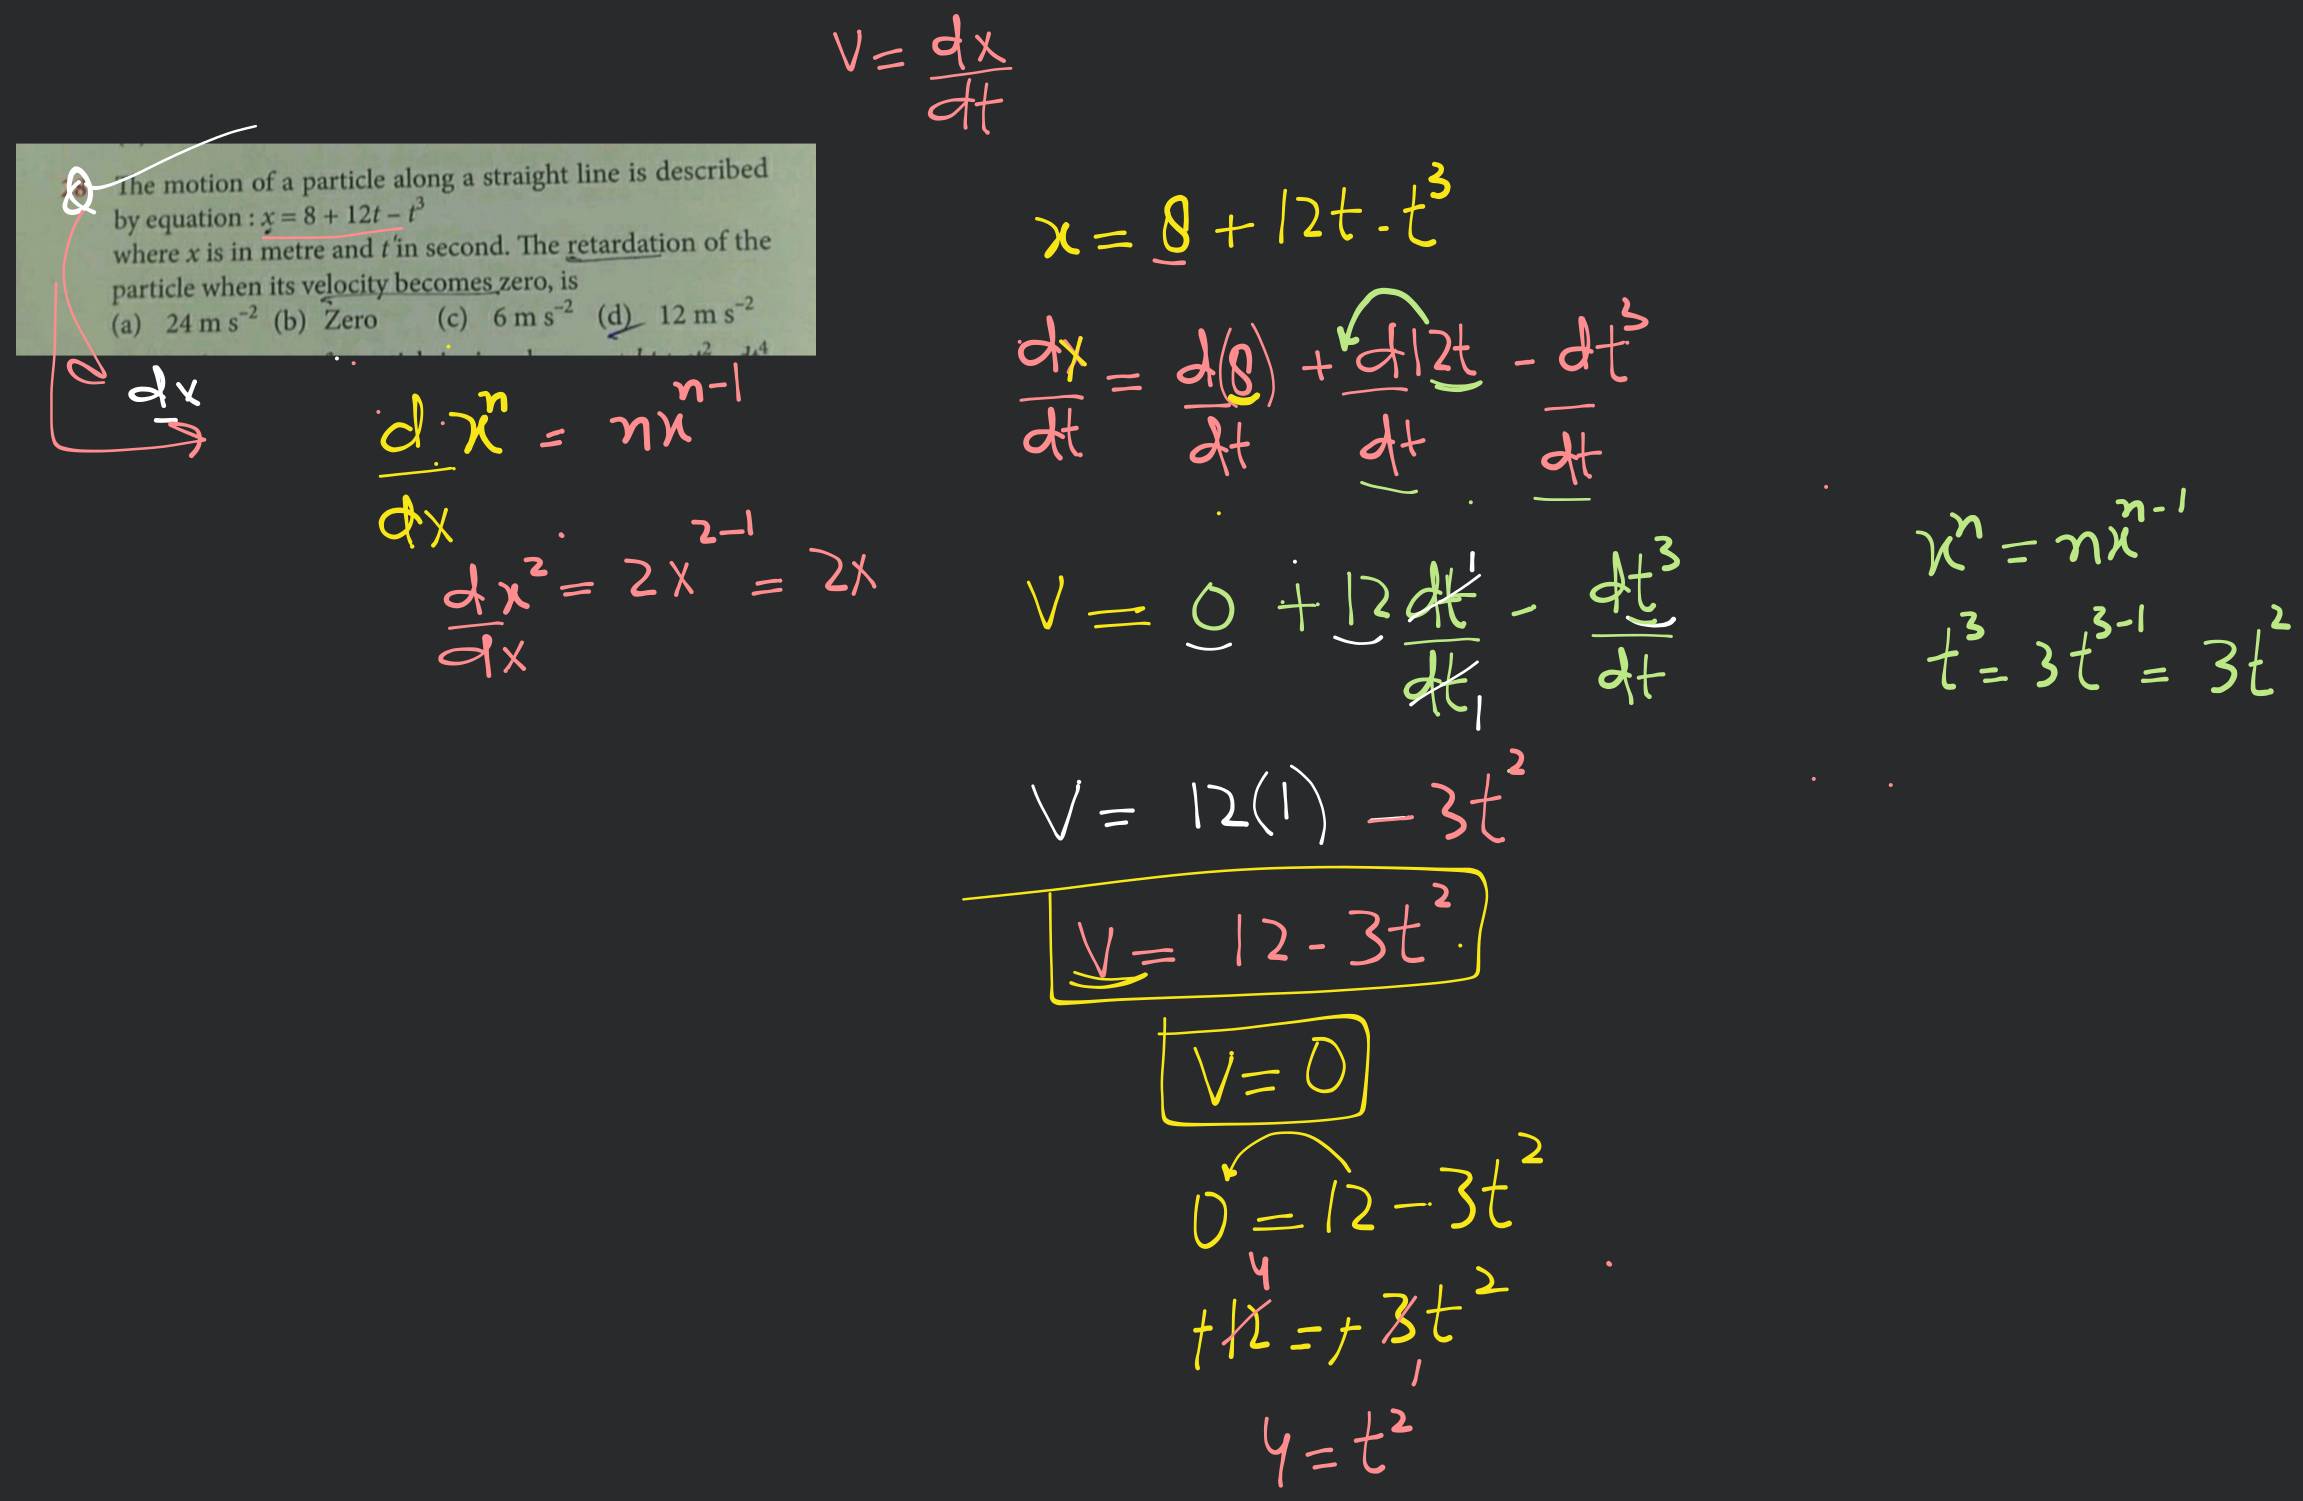 V = dx/dt
Q The motion of a particle along a straight line is described
by equation : x = 8 + 12t – t³
where x is in metre and t in second. The retardation of the
particle when its velocity becomes zero, is
(a) 24 m s⁻² (b) Zero (c) 6 m s⁻² (d) 12 m s⁻²
dx
d/dx xⁿ = nxⁿ⁻¹
d/dx x² = 2x²⁻¹ = 2x
x = 8 + 12t - t³
dx/dt = d(8)/dt + d12t/dt - dt³/dt
V = 0 + 12 dt/dt - dt³/dt
1
1
xⁿ = nxⁿ⁻¹
t³ = 3t³⁻¹ = 3t²
V = 12(1) - 3t²
V = 12 - 3t²
V = 0
0 = 12 - 3t²
4
+12 = + 3t²
1
4 = t²